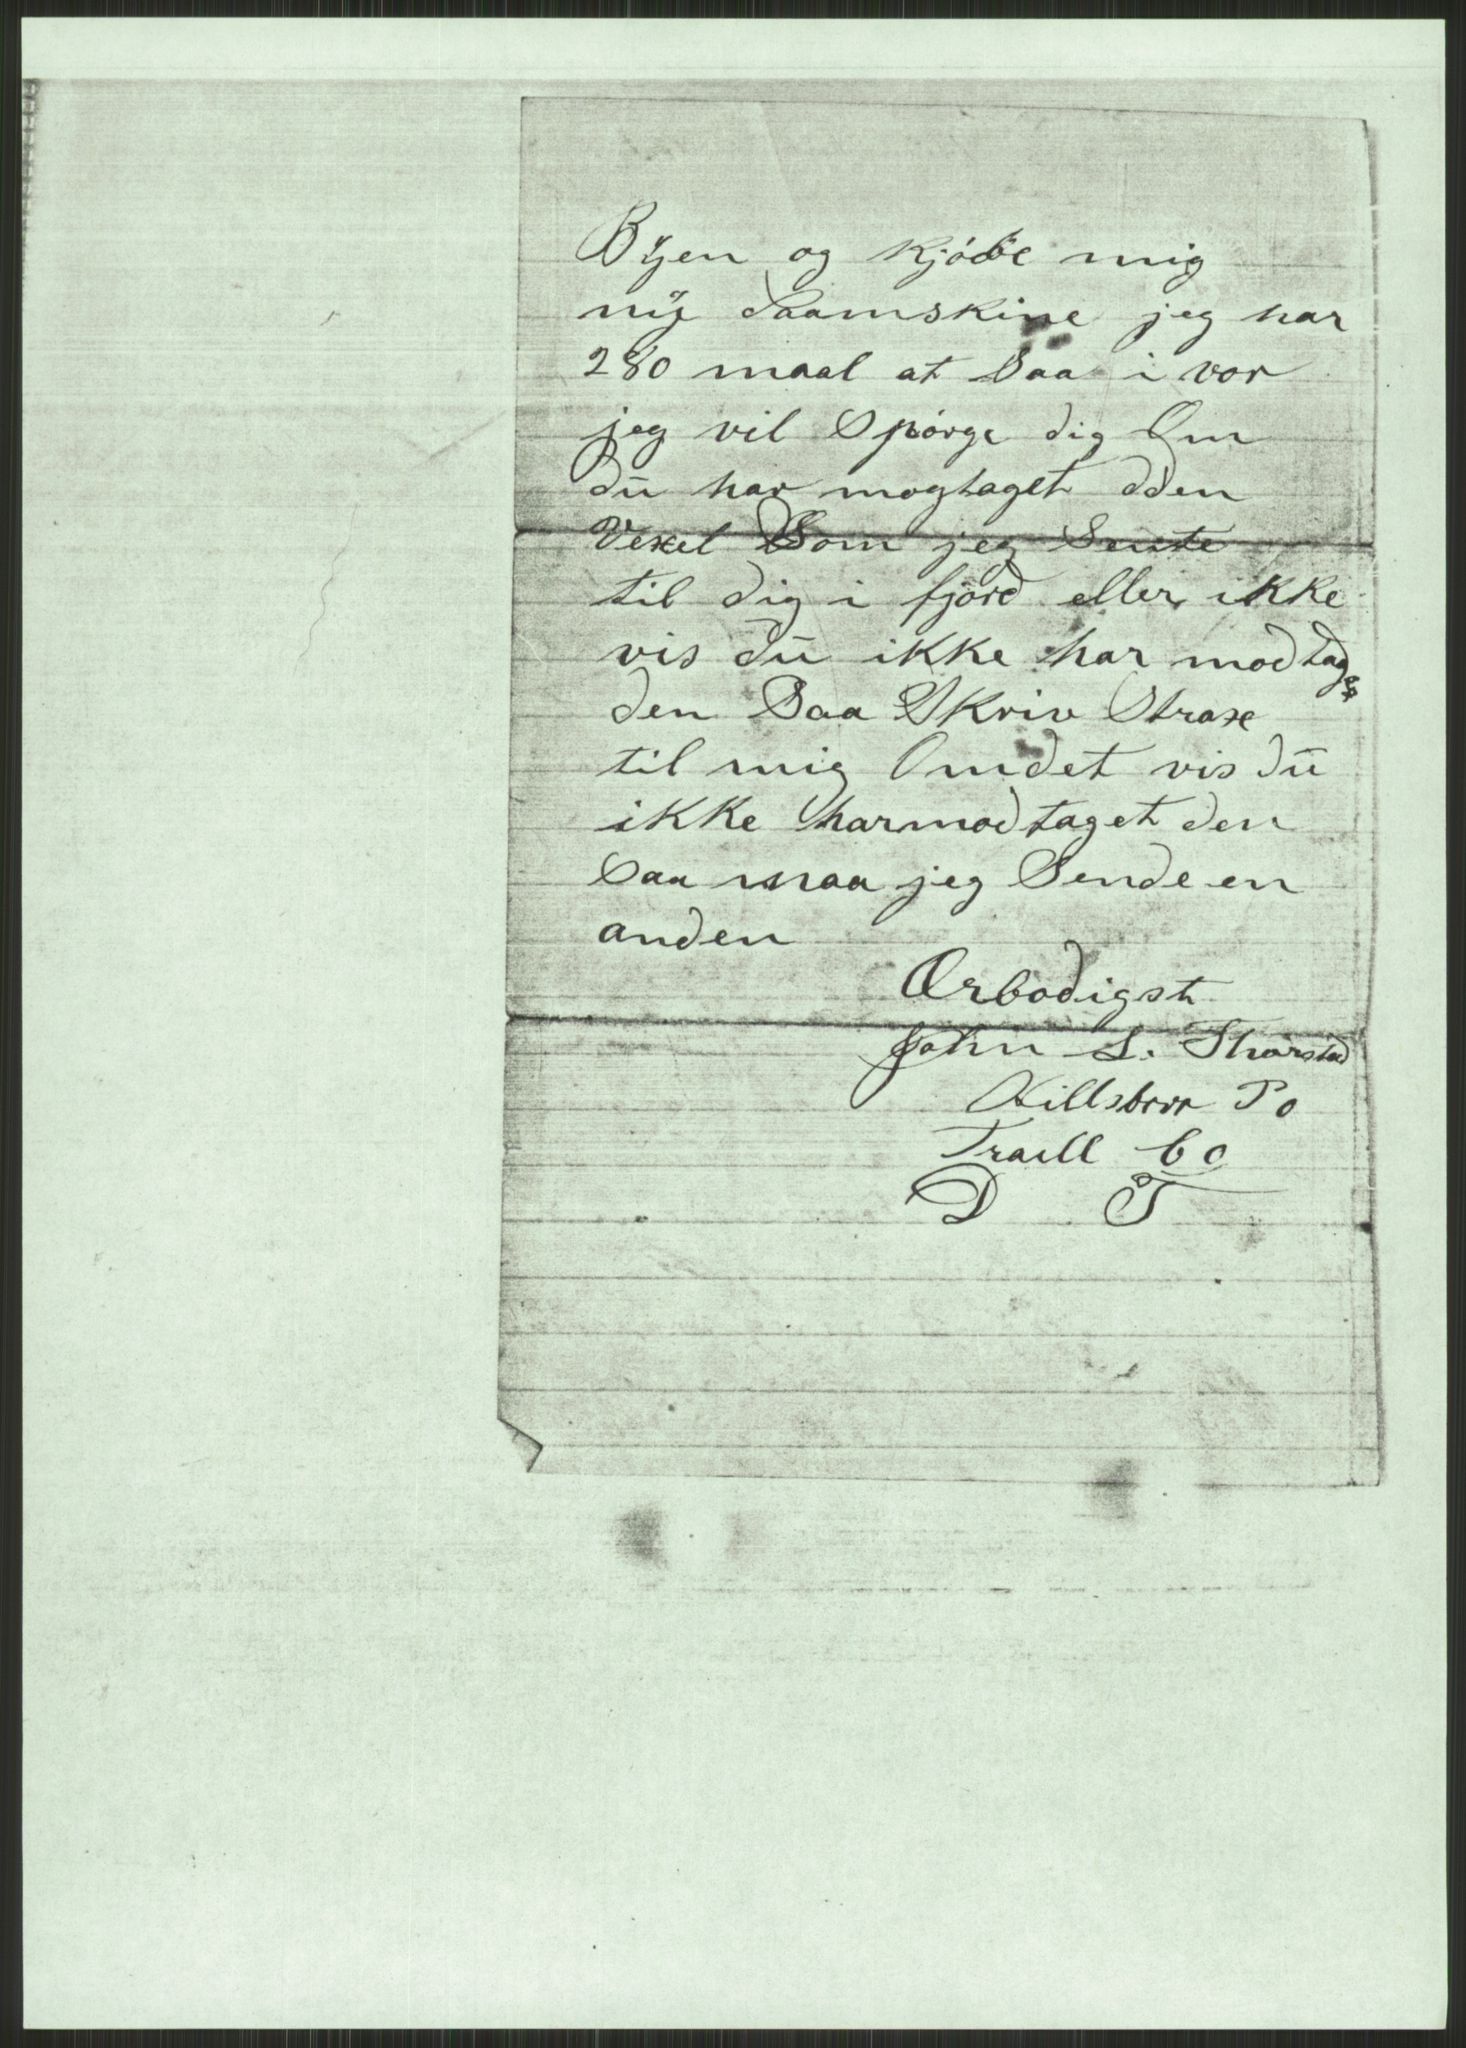 Byen og kjóbe mig
nÿ Saamskine jeg har
280 maal at Saa i vor
jeg vil Spórge dig Om
dū har mogtaget dden
Vexel Som jeg Sente
til dig i fjord eller ikke
vis dū ikke har modtaget
den Saa Skriv Strax
til mig Omdet vis dū
ikke harmodtaget den
Saa maa jeg Sende en
anden
Ærbodigst
John L. Thorstad
Hillsboro Po
Traill Co
D T